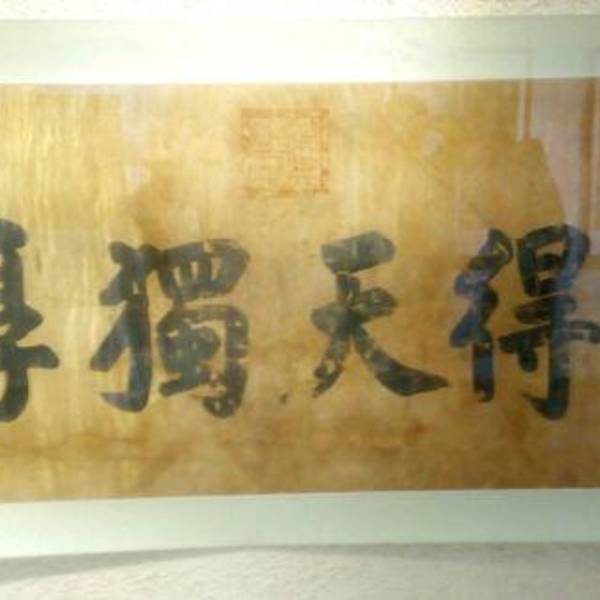 得天獨厚